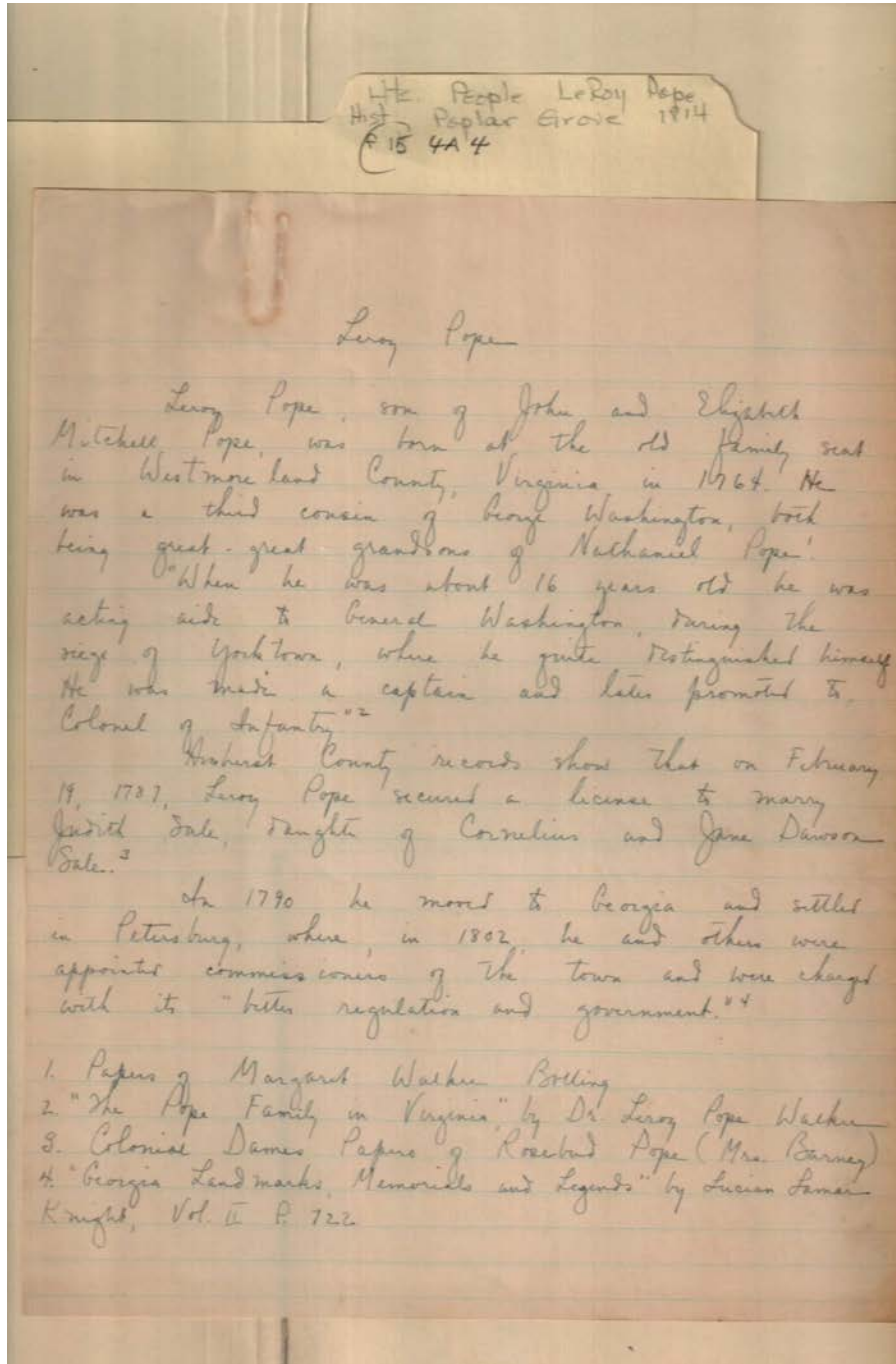 People LeRoy Pope
Hist Poplar Grove 1814
15 4A4
Leroy Pope
Leroy Pope, son of John and Elizabeth
Mitchell Pope, was born at the old family seat
in Westmoreland County, Virginia in 1764. He
was a third cousin of George Washington, both
being great-great grandsons of Nathaniel Pope.¹
"When he was about 16 years old he was
acting aide to General Washington, during the
siege of Yorktown, where he quite distinguished himself
He was made a captain and later promoted to,
Colonel of Infantry"²
Amherst County records show that on February
19, 1787, Leroy Pope secured a license to marry
Judith Sale, daughter of Cornelius and Jane Dawson
Sale.³
In 1790 he moved to Georgia and settled
in Petersburg, where, in 1802, he and others were
appointed commissioners of the town and were charged
with its "better regulation and government."⁴
1. Papers of Margaret Walker Bolling
2. "The Pope Family in Virginia", by Dr. Leroy Pope Walker
3. Colonial Dames Papers of Rosebud Pope (Mrs. Barney)
4. "Georgia Landmarks, Memorials and Legends" by Lucian Lamar
Knight, Vol. II P. 722